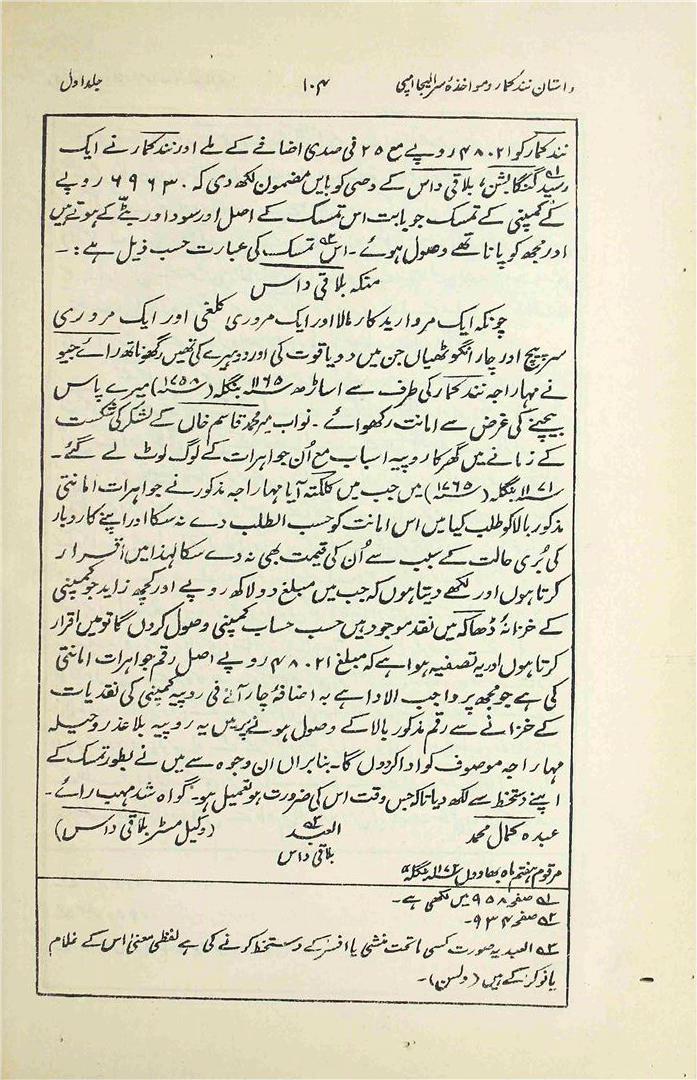 داستان نندکمار و مواخذہ سر الیجا امپی ۱۰۴ جلد اول
نندکمار کو ۴۸۰۲۱ روپے مع ۲۵ فی صدی اضافے کے ملے اور نندکمار نے ایک
رسید گنگا بشن، بلاقی داس کے وصی کو بایں مضمون لکھ دی کہ ۶۹۶۳۰ روپے
کے کمپنی کے تمسک جو بابت اس تمسک کے اصل اور سود اور بٹے کے ہوتے ہیں
اور مجھ کو پانا تھے وصول ہوئے۔ اس ۵۲ تمسک کی عبارت حسب ذیل ہے:۔
منکہ بلاقی داس
چونکہ ایک مروارید کار مالا اور ایک مروری کلغی اور ایک مروری
سرپیچ اور چار انگوٹھیاں جن میں دو یاقوت کی اور دو ہیرے کی تھیں رگھوناتھ رائے جیو
نے مہاراجہ نندکمار کی طرف سے اساڑھ ۱۱۶۵ بنگلہ (۱۷۵۸) میرے پاس
بیچنے کی غرض سے امانت رکھوائے۔ نواب میر محمد قاسم خاں کے لشکر کی شکست
کے زمانے میں گھر کا روپیہ اسباب مع اُن جواہرات کے لوگ لوٹ لے گئے۔
۱۱۷۱ بنگلہ (۱۷۶۵) میں جب میں کلکتہ آیا مہاراجہ مذکور نے جواہرات امانتی
مذکور بالا کو طلب کیا میں اس امانت کو حسب الطلب دے نہ سکا اور اپنے کاروبار
کی بُری حالت کے سبب سے اُن کی قیمت بھی نہ دے سکا لہذا میں اقرار
کرتا ہوں اور لکھے دیتا ہوں کہ جب میں مبلغ دو لاکھ روپے اور کچھ زاید جو کمپنی
کے خزانۂ ڈھاکہ میں نقد موجود ہیں حسب حساب کمپنی وصول کر دں گا تو میں اقرار
کرتا ہوں اور یہ تصفیہ ہوا ہے کہ مبلغ ۴۸۰۲۱ روپے اصل رقم جواہرات امانتی
کی ہے جو مجھ پر واجب الادا ہے بہ اضافۂ چار آنے فی روپیہ کمپنی کی نقدیات
کے خزانے سے رقم مذکور بالا کے وصول ہونے پر میں یہ روپیہ بلا عذر و حیلہ
مہاراجہ موصوف کو ادا کر دوں گا۔ بنابراں ان وجوہ سے میں نے بطور تمسک کے
اپنے دستخط سے لکھ دیا تاکہ جس وقت اس کی ضرورت ہو تعمیل ہو۔ گواہ شد مہب رائے۔
عبدہ کمال محمد العبد ۵۳ (وکیل مسٹر بلاقی داس)
بلاقی داس
مرقوم ہفتم ماہ بھادوں ۱۱۷۲ بنگلہ
۵۱ صفحہ ۹۵۸ میں لکھی ہے۔
۵۲ صفحہ ۹۳۴۔
۵۳ العبد یہ صورت کسی ماتحت منشی یا افسر کے دستخط کرنے کی ہے لفظی معنی اس کے غلام
یا نوکر کے ہیں (ولسن)۔